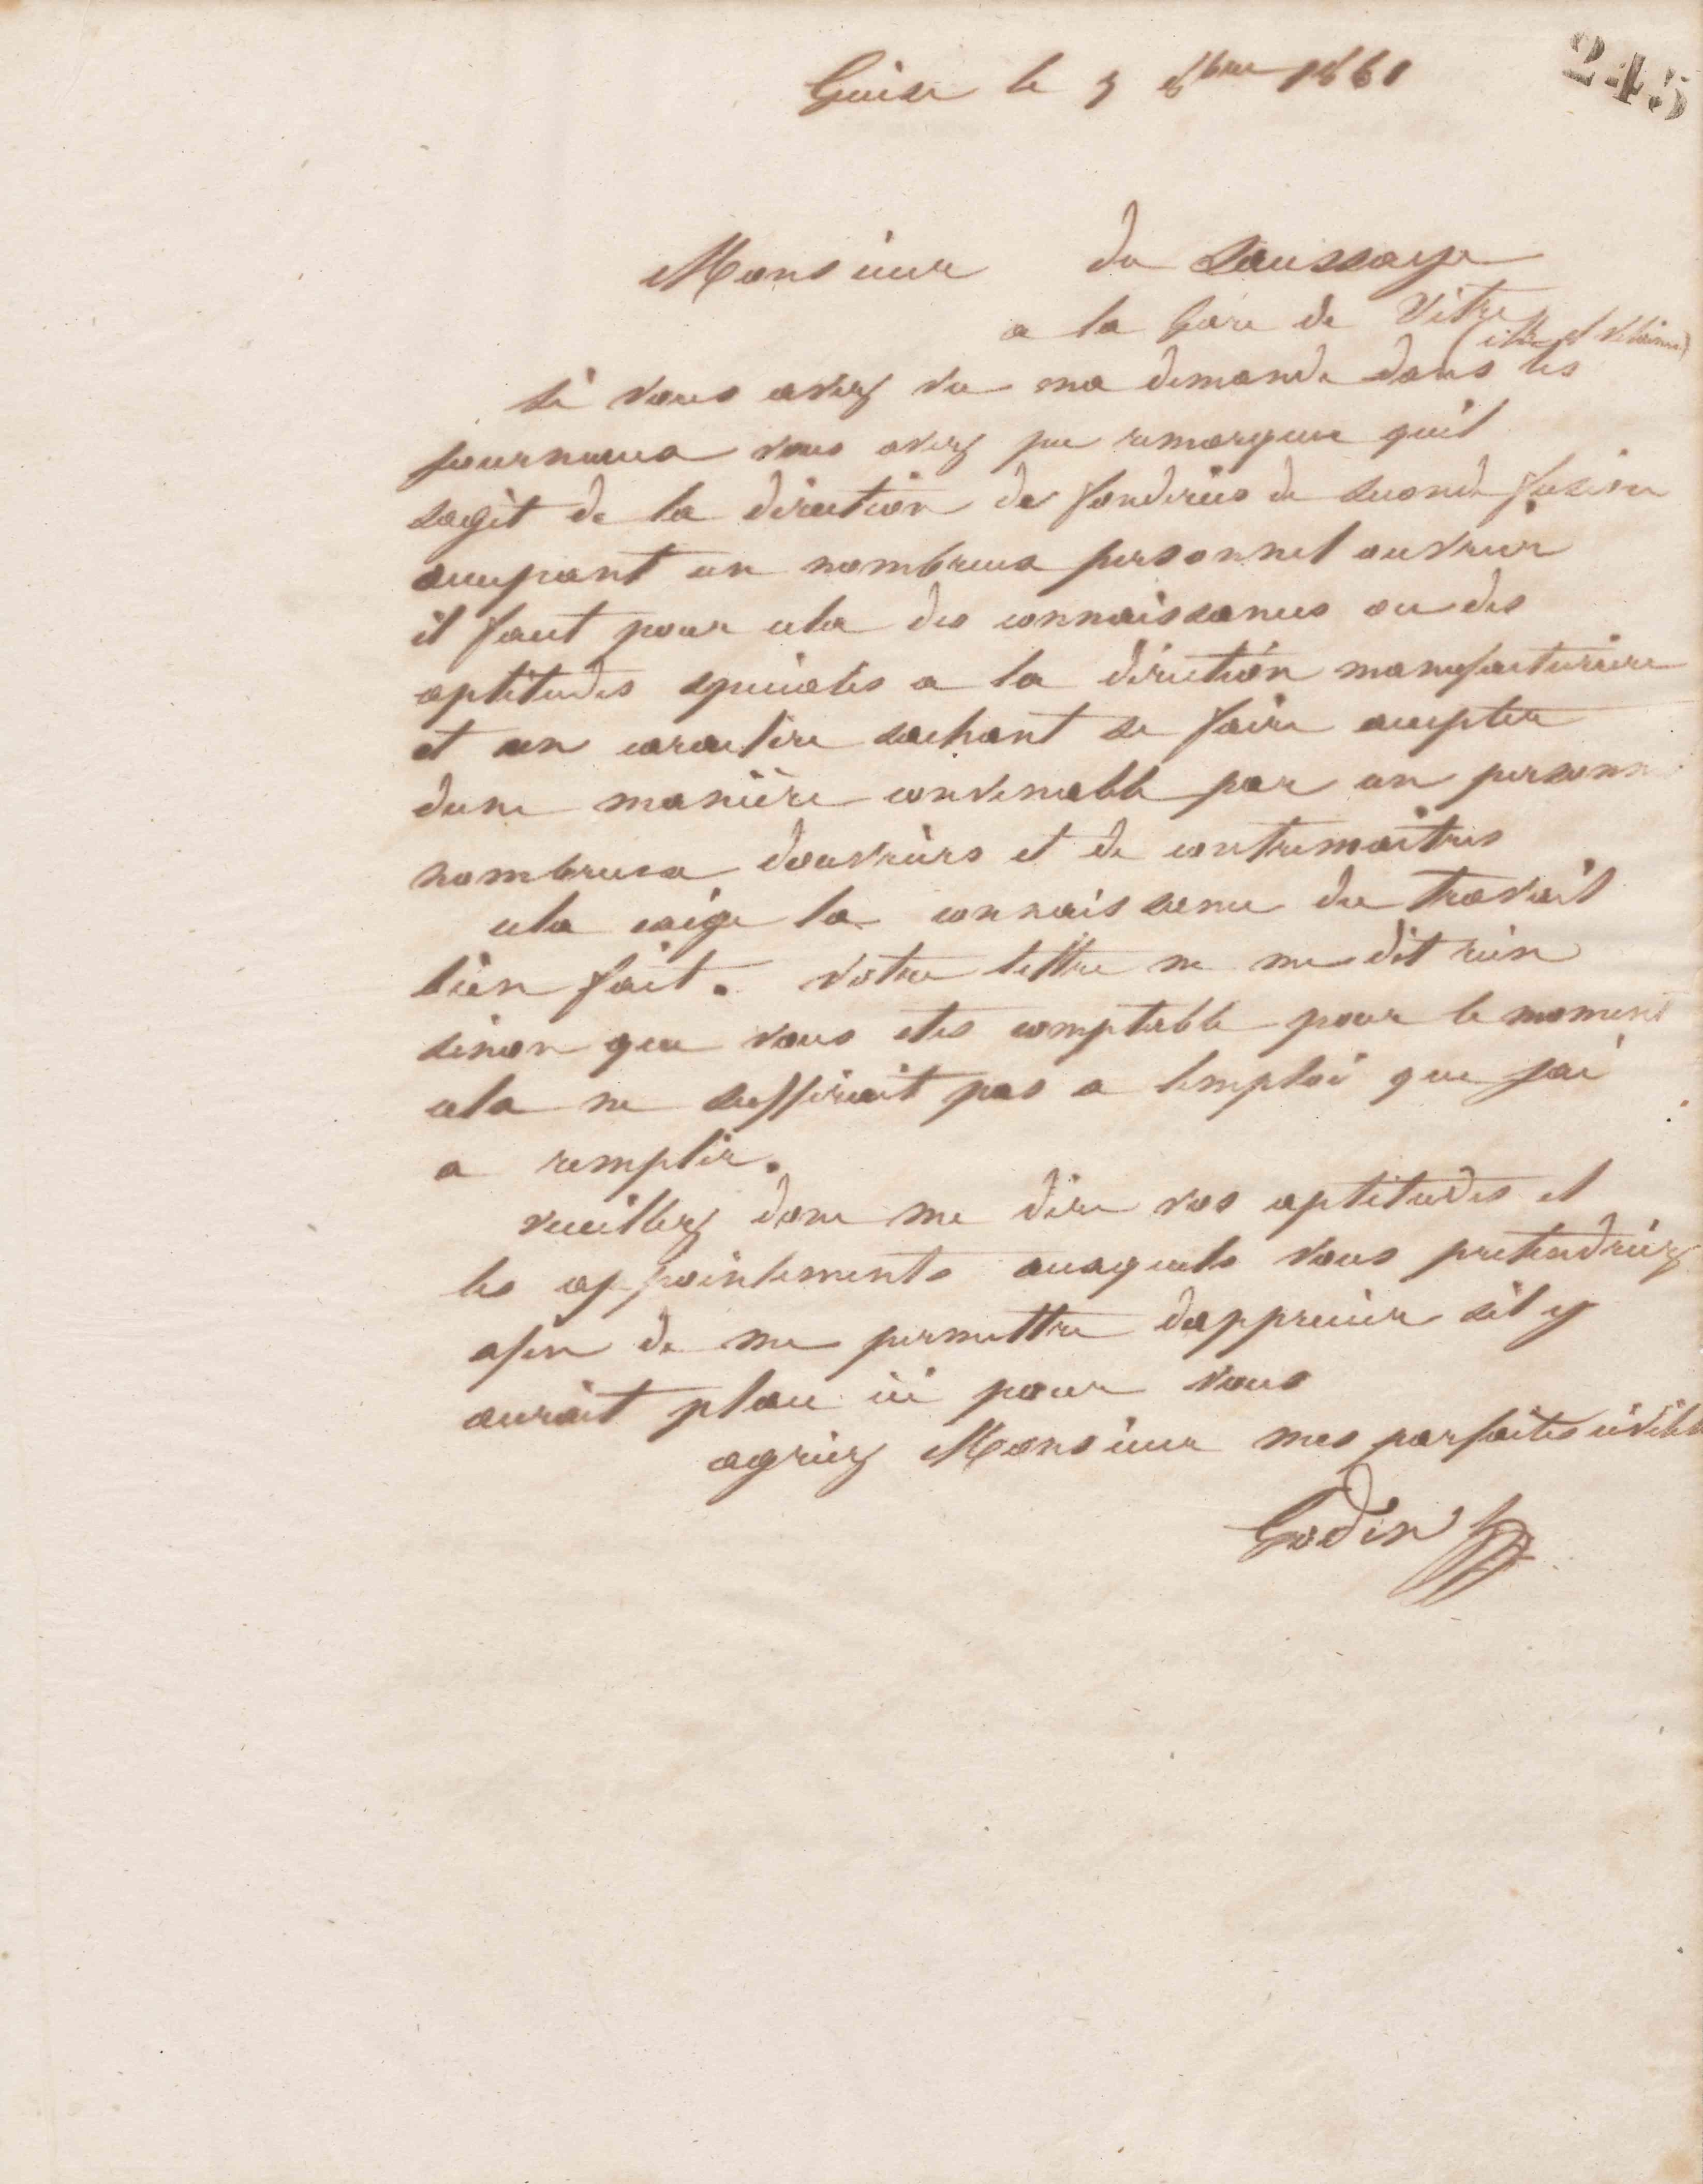 245
Guise le 3 8bre 1861
Monsieur du Saussaye
a la Gare de Vitre
(ille et Vilaine)
si vous avez vu ma demande dans les
journaux vous avez pu remarquer quil
sagit de la direction de fonderies de seconde fusion
occupant un nombreux personnel ouvrier
il faut pour cela des connaissances ou des
aptitudes speciales a la direction manufacturiere
et un caractere sachant se faire accepter
dune manière convenable par un personn
nombreux douvriers et de contremaitres
cela exige la connaissance du travail
bien fait. Votre lettre ne me dit rien
sinon que vous etes comptable pour le moment
cela ne suffirait pas a lemploi que jai
a remplir.
veuillez donc me dire vos aptitudes et
les appointements auxquels vous pretendriez
afin de me permettre dapprecier sil y
aurait place ici pour vous
agréez Monsieur mes parfaites civilit
Godin